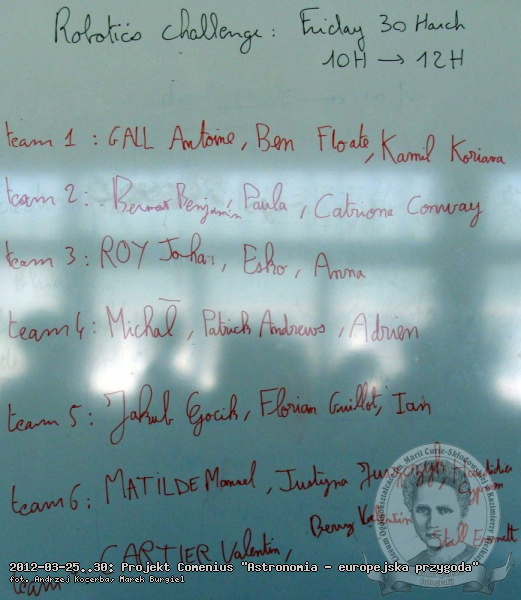 Robotics challenge: Friday 30 March
10H → 12H
team 1 : GALL Antoine, Ben Floate, Kamil Koriana
team 2 : Benjamin Paula, Catrione Conway
team 3 : ROY Johan, Esko, Anna
team 4 : Michał, Patrick Andrews, Adrien
team 5 : Jakub Gocik, Florian Guillot, Iain
team 6 : MATILDE Manuel, Justyna
Berry Valentin
CARTIER Valentin,
team
2012-03-25..30: Projekt Comenius "Astronomia - europejska przygoda"
fot. Andrzej Kocerba, Marek Burgiel